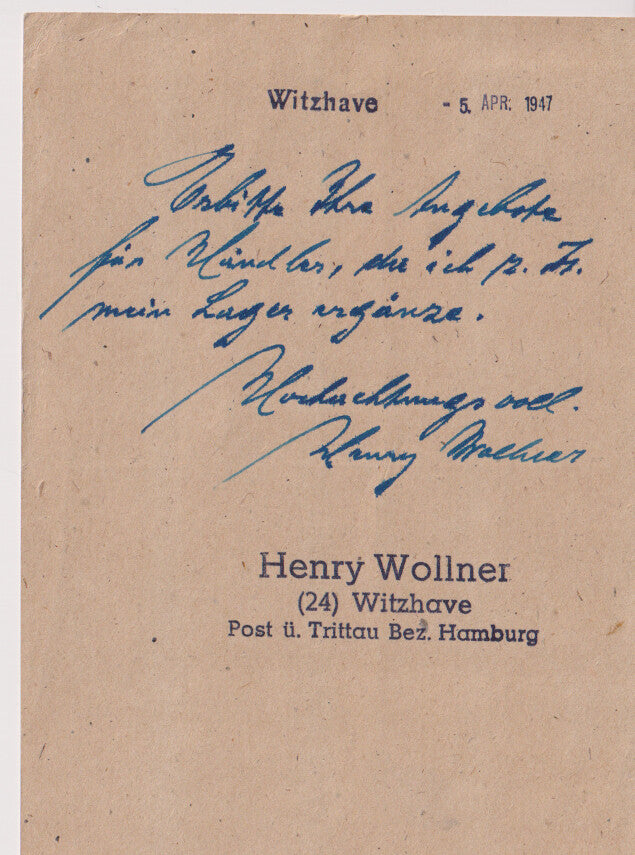 Witzhave - 5. APR. 1947
Erbitte Ihre Angebote
für Händler, da ich z. Zt.
mein Lager ergänze.
Hochachtungsvoll.
Henry Wollner
Henry Wollner
(24) Witzhave
Post ü. Trittau Bez. Hamburg